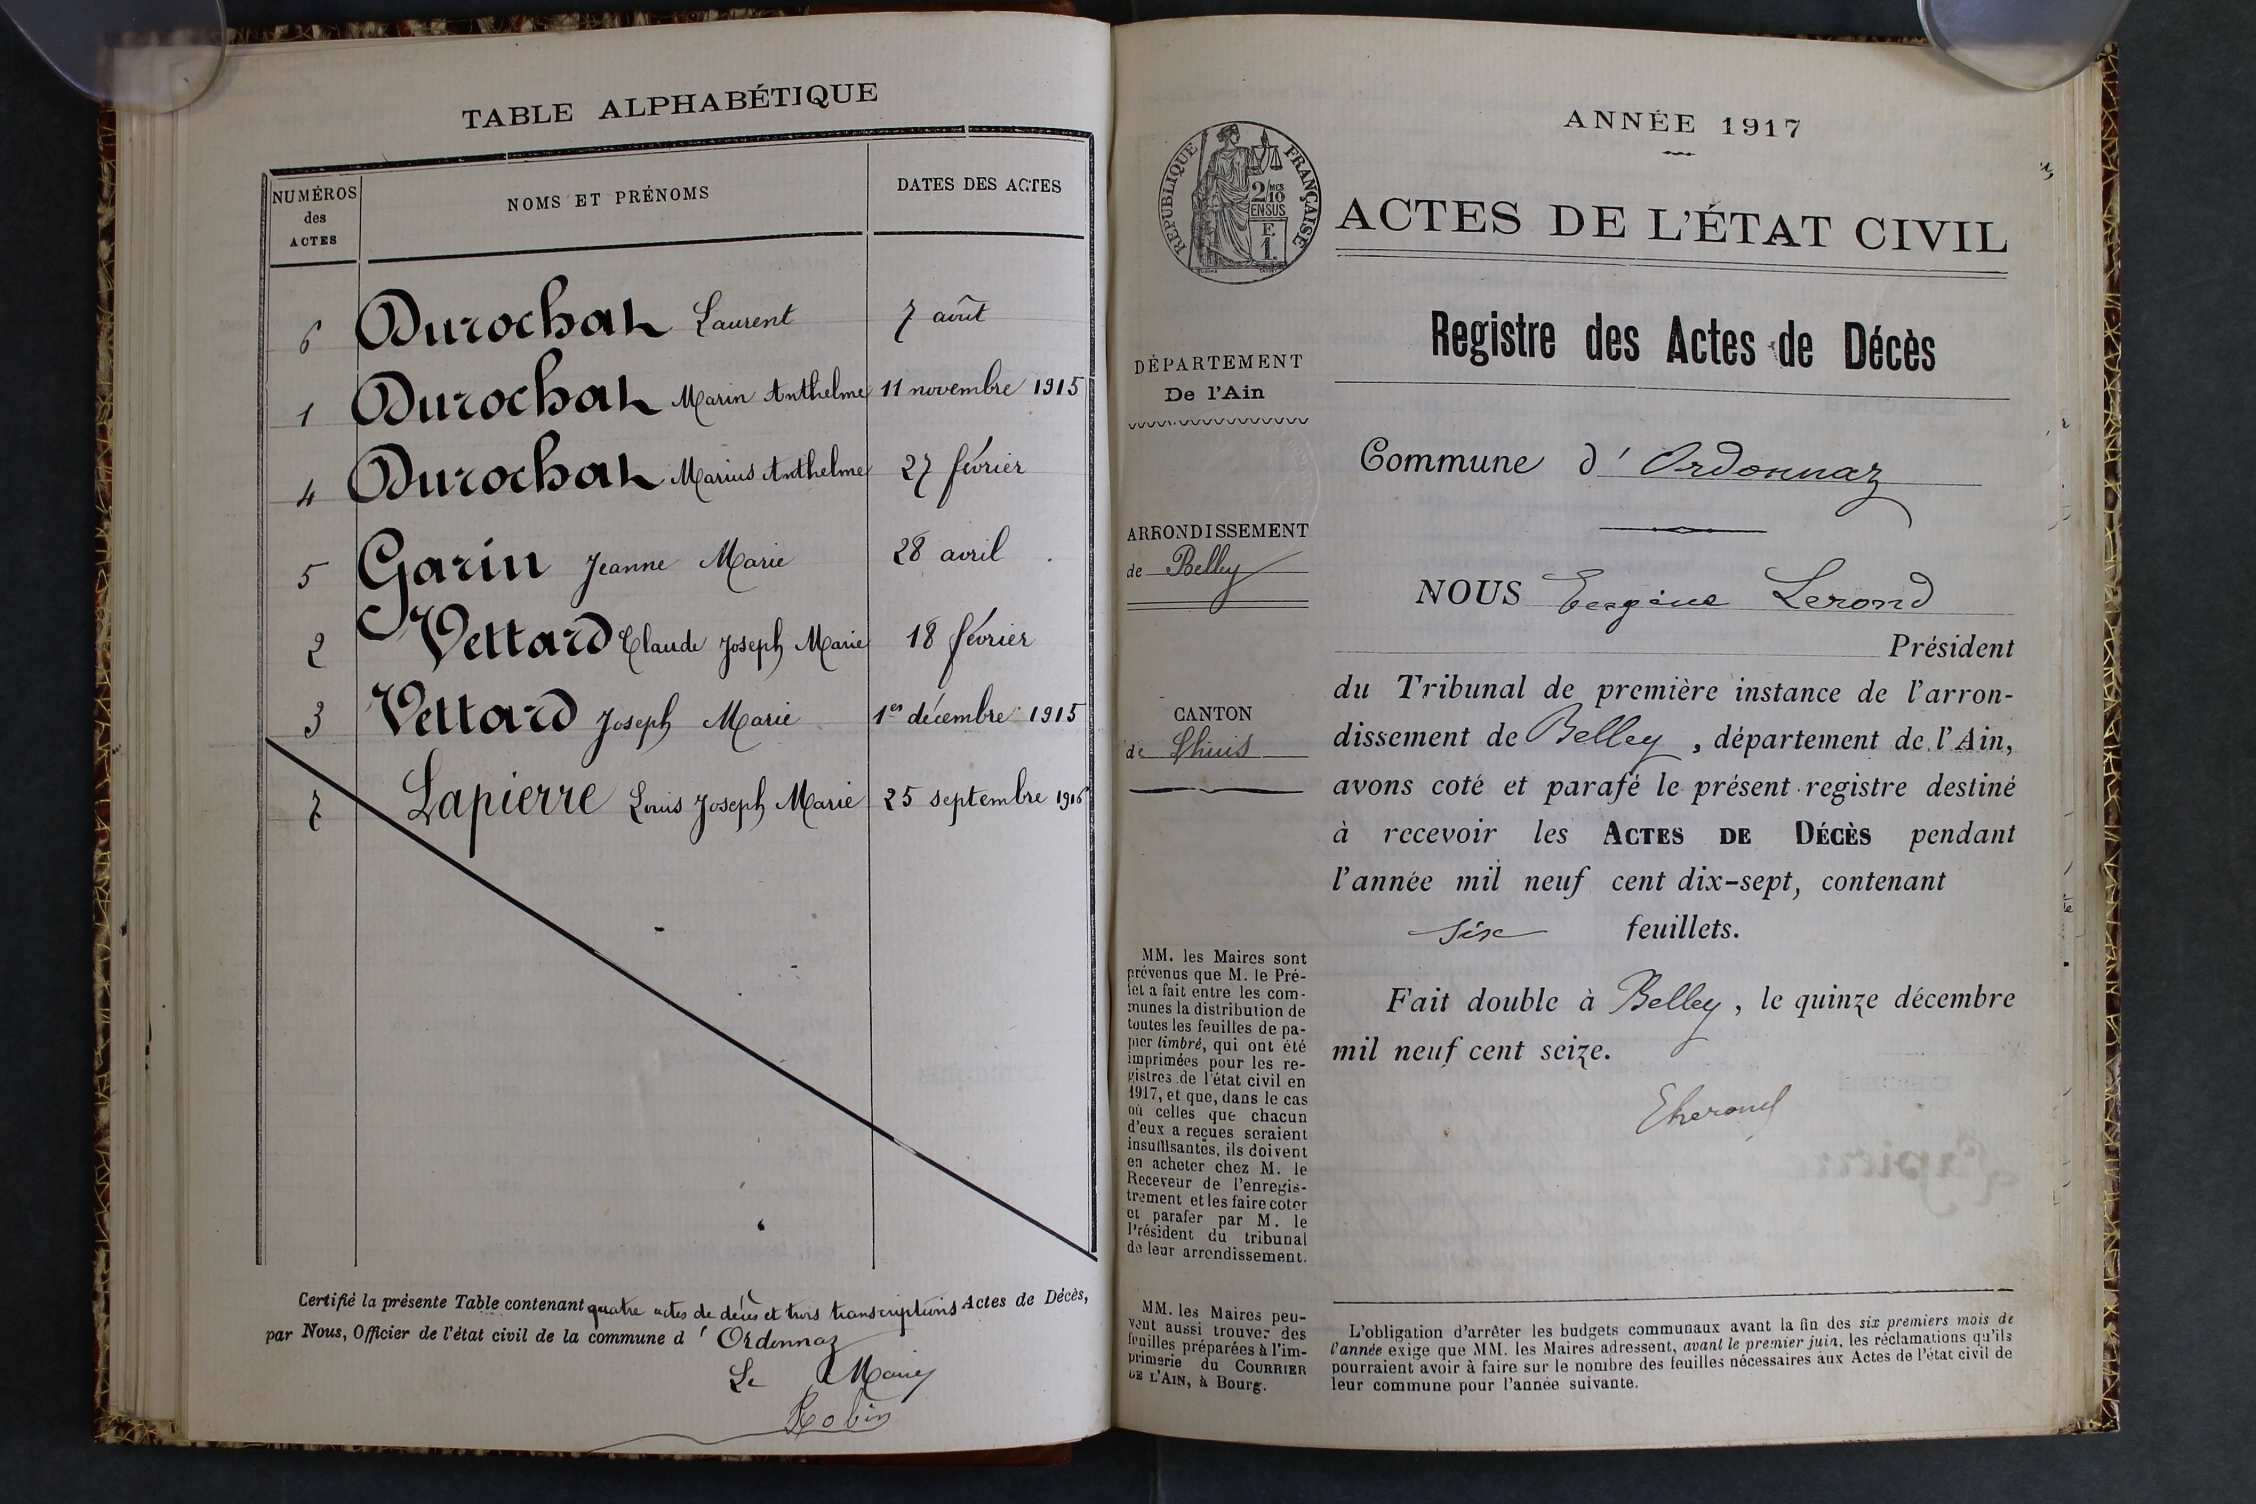 TABLE ALPHABÉTIQUE
NUMÉROS des ACTES | NOMS ET PRÉNOMS | DATES DES ACTES
6 Durochat Laurent 7 août
1 Durochat Marin Anthelme 11 novembre 1915
4 Durochat Marius Anthelme 27 février
5 Garin Jeanne Marie 28 avril
2 Vettard Claude Joseph Marie 18 février
3 Vettard Joseph Marie 1er décembre 1915
7 Lapierre Louis Joseph Marie 25 septembre 1916
Certifié la présente Table contenant quatre actes de décès et trois transcriptions Actes de Décès,
par Nous, Officier de l'état civil de la commune d'Ordonnaz
Le Maire
Robin
ANNÉE 1917
RÉPUBLIQUE FRANÇAISE
2/10 MES
EN SUS
F.
1.
ACTES DE L'ÉTAT CIVIL
Registre des Actes de Décès
DÉPARTEMENT
De l'Ain
Commune d'Ordonnaz
ARRONDISSEMENT
de Belley
CANTON
de Lhuis
NOUS Eugène Lerond
Président
du Tribunal de première instance de l'arron-
dissement de Belley, département de l'Ain,
avons coté et parafé le présent registre destiné
à recevoir les ACTES DE DÉCÈS pendant
l'année mil neuf cent dix-sept, contenant
six feuillets.
Fait double à Belley, le quinze décembre
mil neuf cent seize.
MM. les Maires sont
prévenus que M. le Pré-
fet a fait entre les com-
munes la distribution de
toutes les feuilles de pa-
pier timbré, qui ont été
imprimées pour les re-
gistres de l'état civil en
1917, et que, dans le cas
où celles que chacun
d'eux a reçues seraient
insuffisantes, ils doivent
en acheter chez M. le
Receveur de l'enregis-
trement et les faire coter
et parafer par M. le
Président du tribunal
de leur arrondissement.
MM. les Maires peu-
vent aussi trouver des
feuilles préparées à l'im-
primerie du COURRIER
DE L'AIN, à Bourg.
L'obligation d'arrêter les budgets communaux avant la fin des six premiers mois de
l'année exige que MM. les Maires adressent, avant le premier juin, les réclamations qu'ils
pourraient avoir à faire sur le nombre des feuilles nécessaires aux Actes de l'état civil de
leur commune pour l'année suivante.